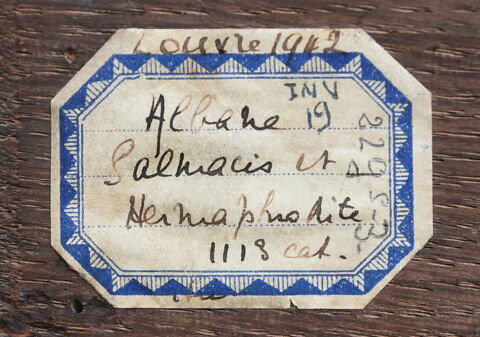 Louvre 1942
INV
Albane 19
Salmacis et
Hermaphrodite
1113 cat.